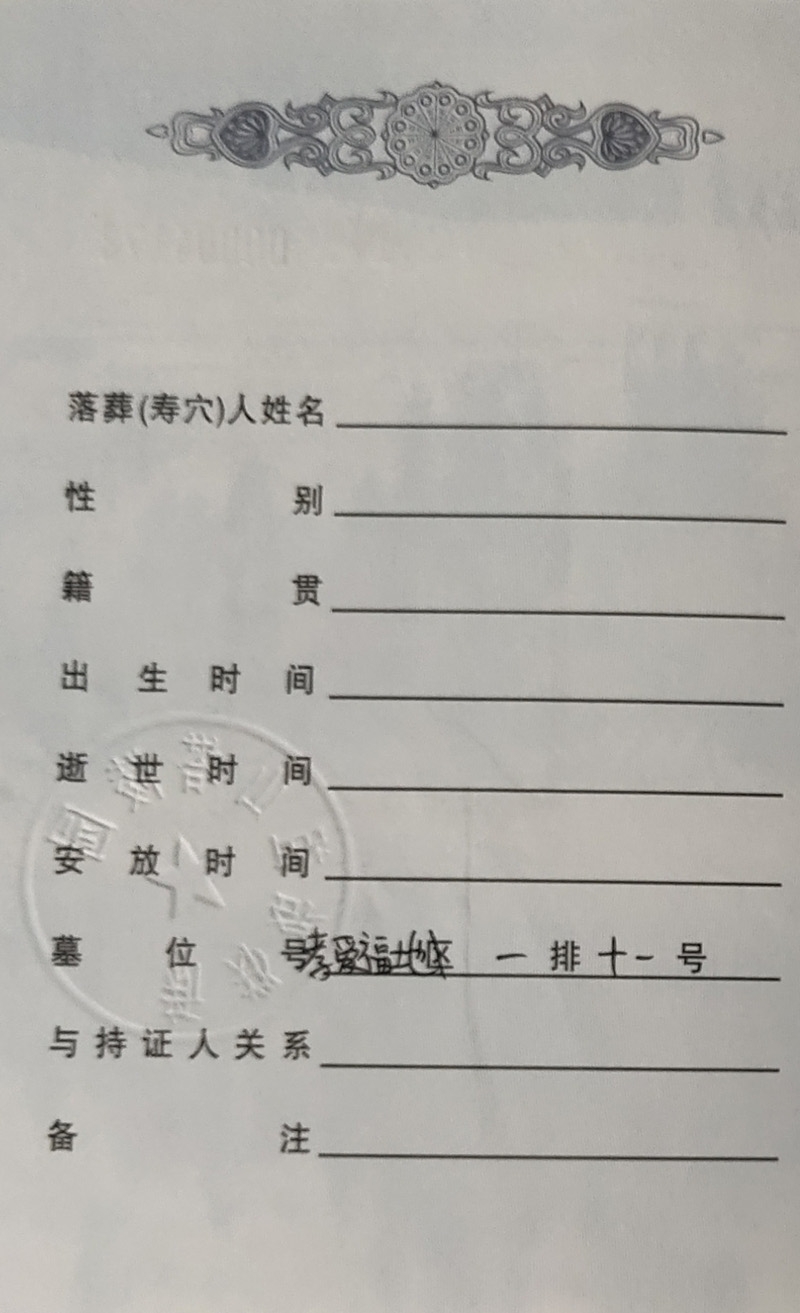 落葬(寿穴)人姓名
性别
籍贯
出生时间
逝世时间
安放时间
墓位号孝爱福地区 一排十一号
与持证人关系
备注